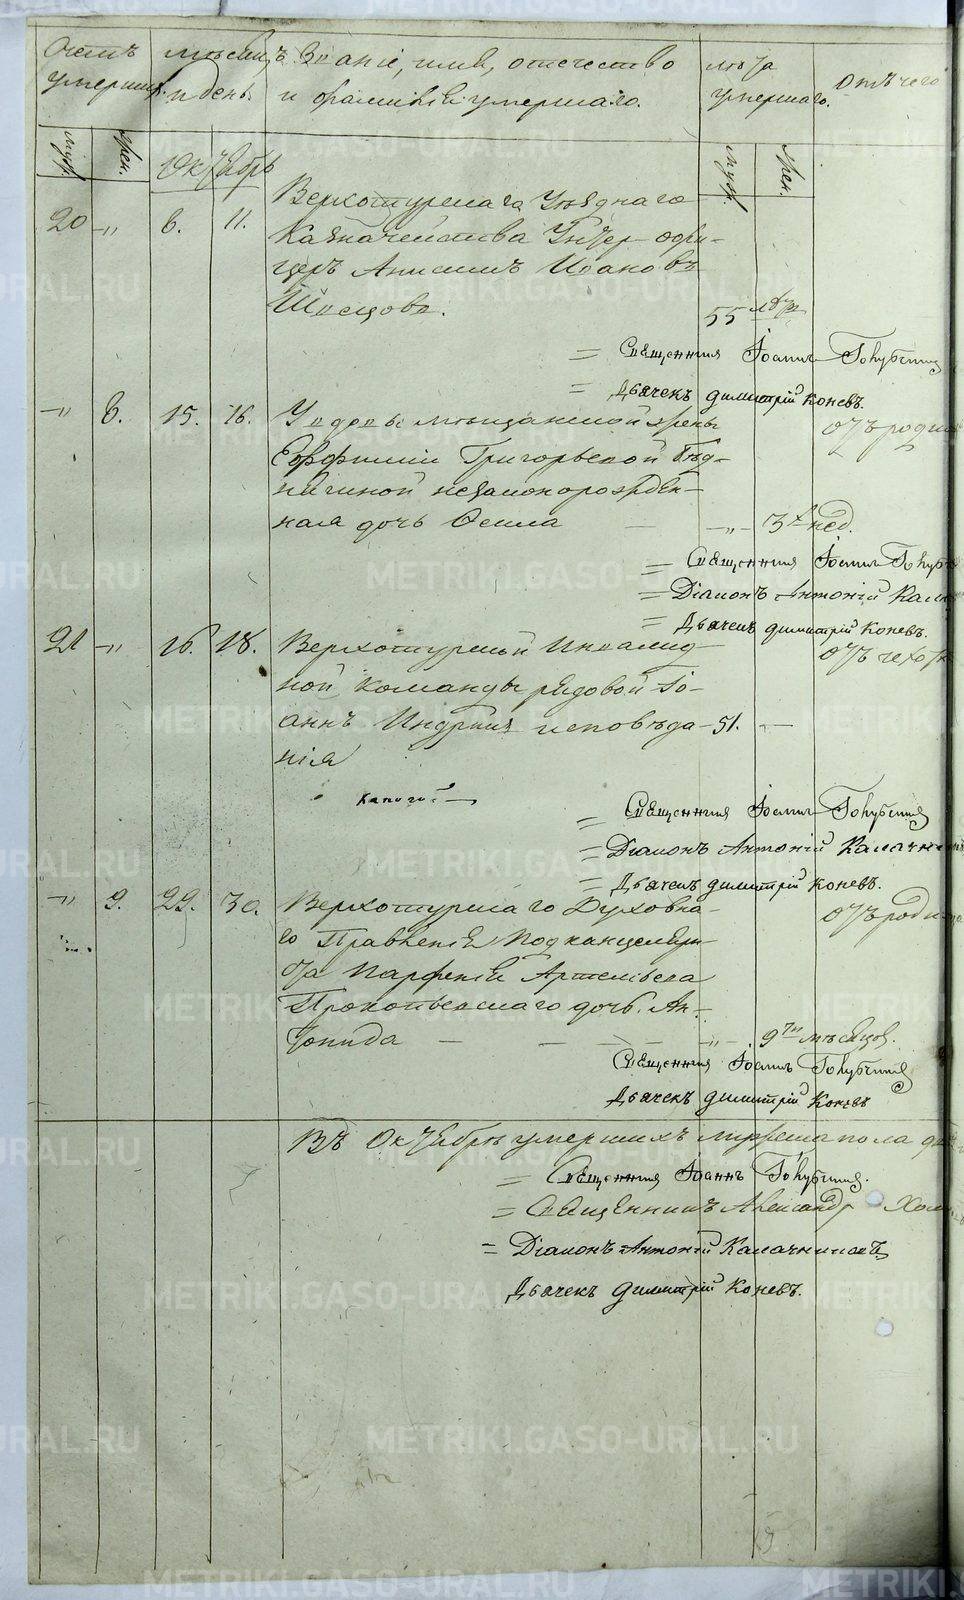 Счетъ умершихъ.
Мѣсяцъ и день.
Званіе, имя, отечество
и фамилія умершаго.
Лѣта
умершаго.
Отъ чего
муж.
жен.
Октябрь
муж.
жен.
20 -„- 6. 11. Верхотурскаго Уѣзднаго
Казначейства Унтер-офи-
церъ Анисимъ Ивановъ
55 лѣтъ
= Священникъ Іоаннъ
= Дьячекъ Димитрій Коневъ.
-„- 8. 15. 16. У вдовы мѣщанской жены
Евфиміи Григорьевой
незаконорожден-
ная дочь -„- 3х нед.
отъ роди
= Священникъ Іоаннъ
= Діаконъ Антоній Кала
= Дьячекъ Димитрій Коневъ.
21 -„- 16. 18. Верхотурской Инвалид-
ной команды рядовой Іо-
аннъ исповѣда- 51. -
нія
отъ чехот
= Священникъ Іоаннъ
= Діаконъ Антоній Калачник
= Дьячекъ Димитрій Коневъ.
-„- 9. 29. 30. Верхотурскаго Духовна-
го Правленія Подканцеляри-
ста Парфенія Артемьева
Прокопьевскаго дочь Ан-
тонида -„- 9ти мѣсяцов.
отъ роди
Священникъ Іоаннъ
Дьячекъ Димитрій Коневъ
Въ Октябрѣ умершихъ мужеска пола
= Священникъ Іоаннъ
= Священникъ Александръ
= Діаконъ Антоній Калачниковъ
Дьячекъ Димитрій Коневъ.
METRIKI.GASO-URAL.RU